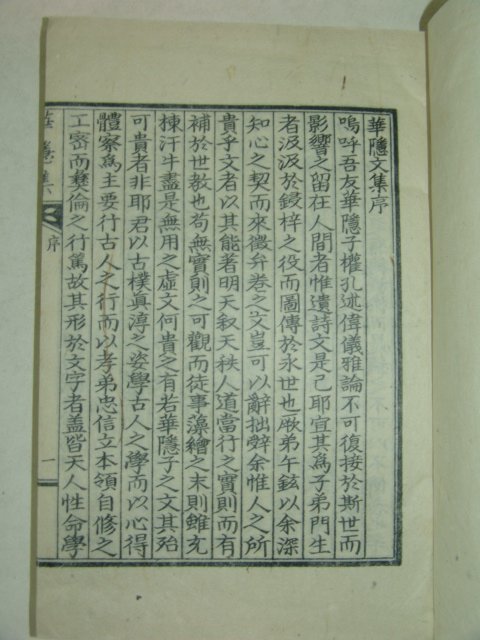 華隱文集序
嗚呼吾友華隱子權孔述偉儀雅論不可復接於斯世而
影響之留在人間者惟遺詩文是已耶宜其為子弟門生
者汲汲於鋟梓之役而圖傳於永世也厥弟午鉉以余深
知心之契而來徵弁卷之文豈可以辭拙辤余惟人之所
貴乎文者以其能著明天叙天秩人道當行之實則而有
補於世教也苟無實則之可觀而徒事藻繪之末則雖充
棟汗牛盡是無用之虛文何貴之有若華隱子之文其殆
可貴者非耶君以古樸眞淳之姿學古人之學而以心得
體察為主要行古人之行而以孝弟忠信立本領自修之
工密而彜倫之行篤故其形於文字者盖皆天人性命學
華隱集
序
一